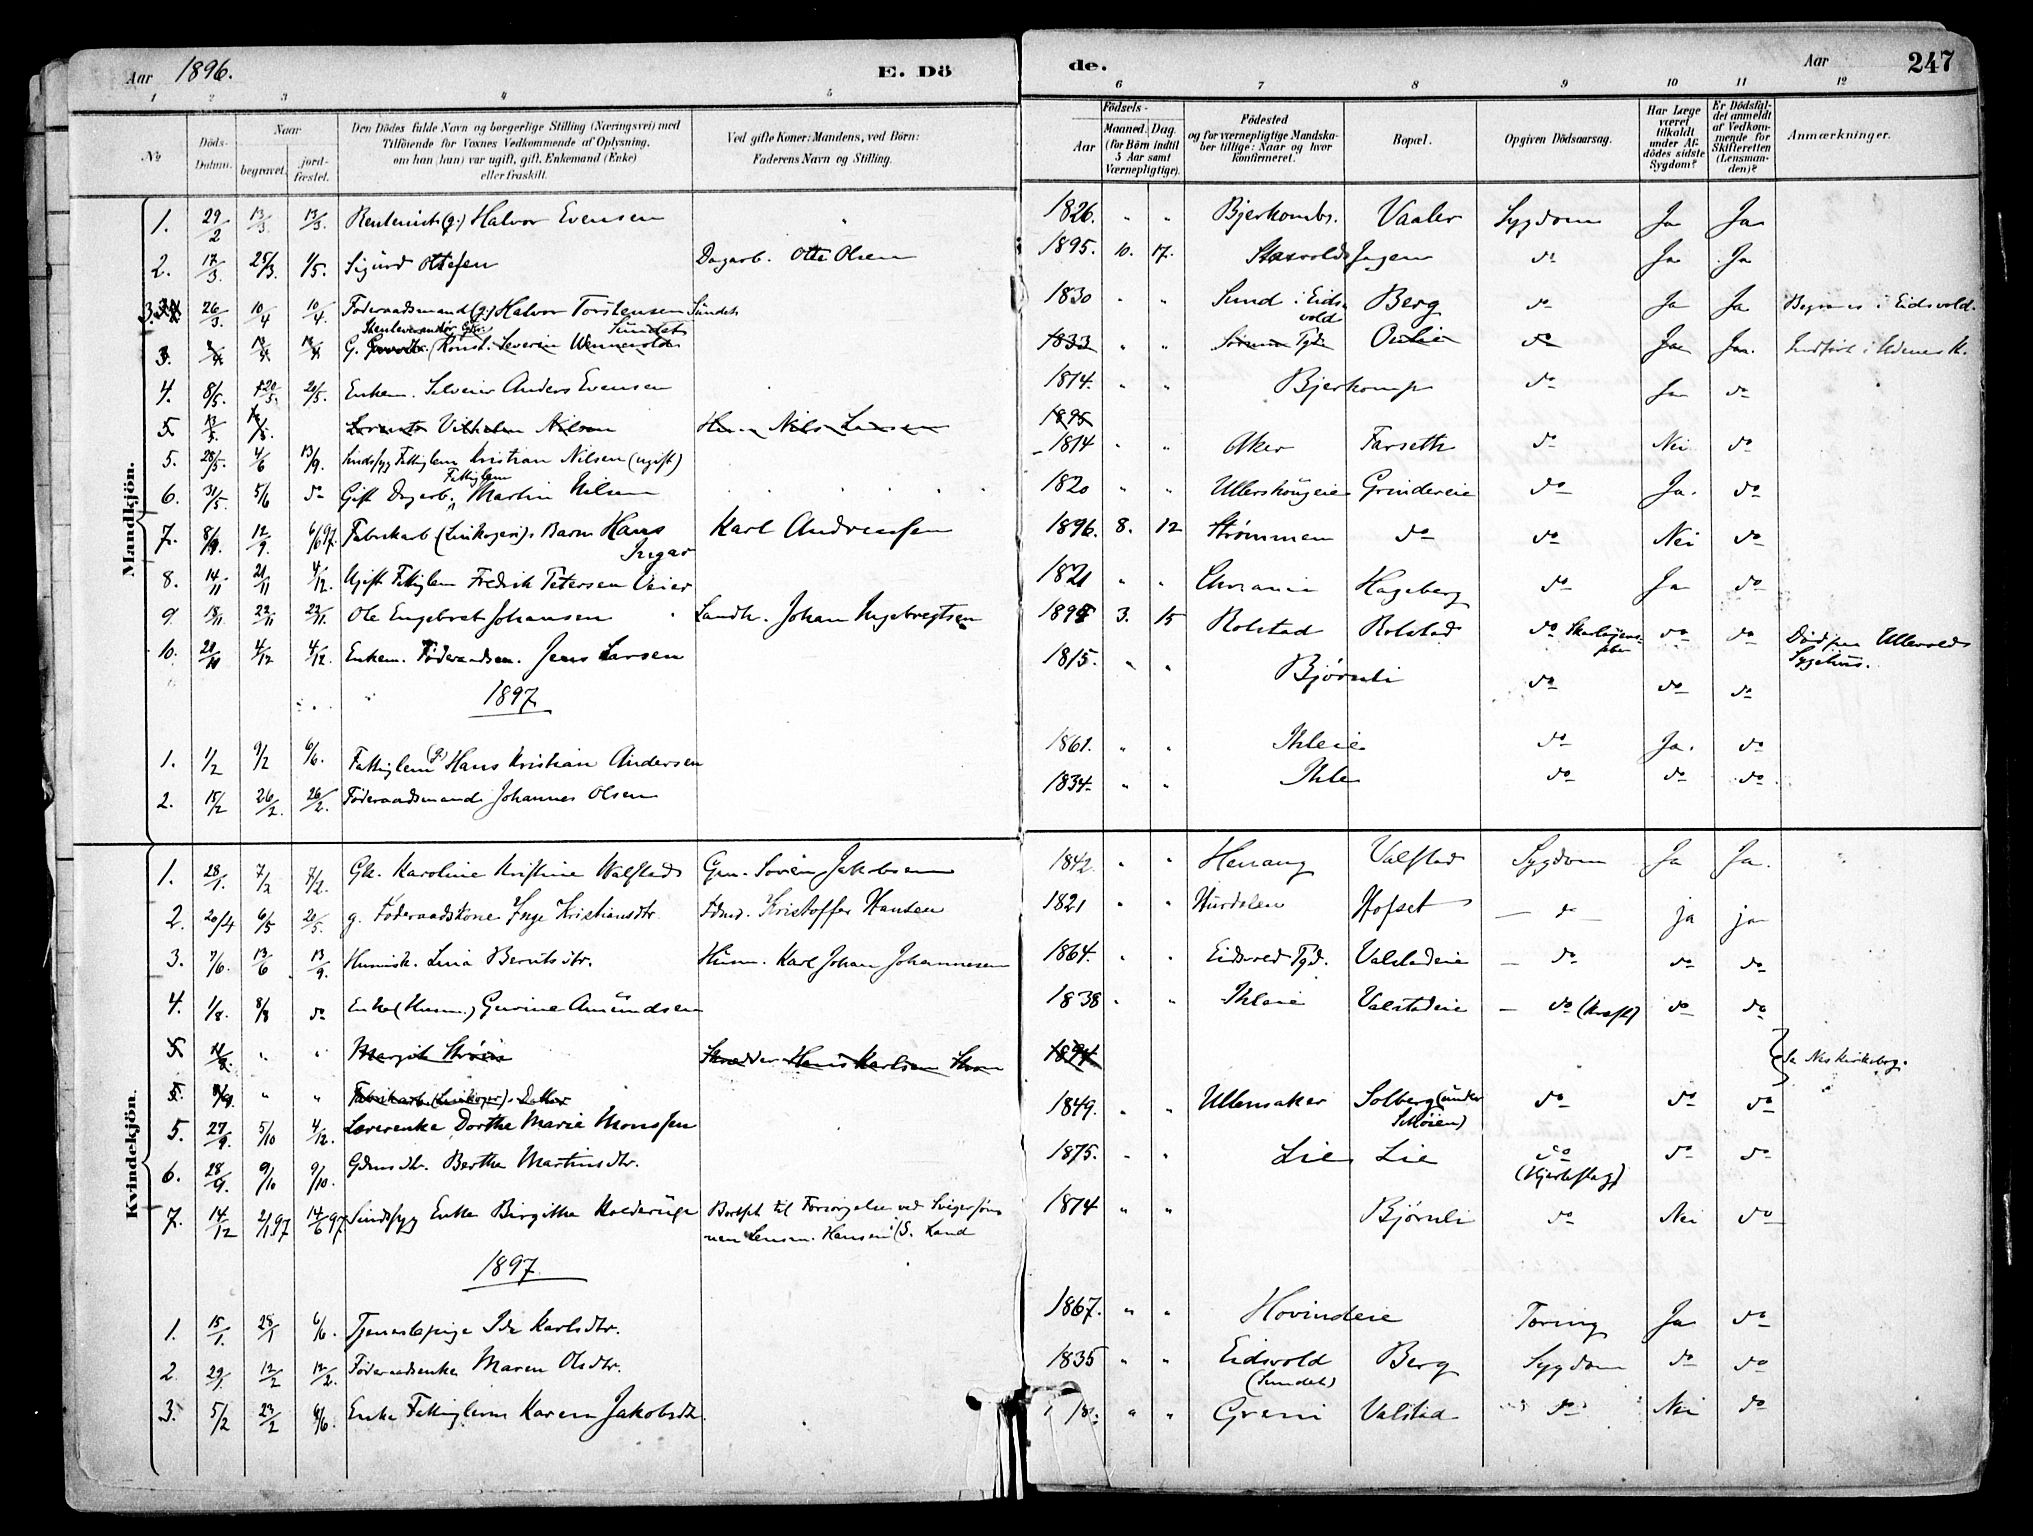 Aar 1896. E. Dö de. Aar 247
1 2 3 4 5 6 7 8 9 10 11 12
№ Döds-Datum. Naar begravet. jordfæstet. Den Dödes fulde Navn og borgerlige Stilling (Næringsvei) med Tilföiende for Voxnes Vedkommende af Oplysning, om han (hun) var ugift, gift, Enkemand (Enke) eller fraskilt. Ved gifte Koner: Mandens, ved Börn: Faderens Navn og Stilling. Födsels- Aar Maaned. Dag. (for Börn indtil 5 Aar samt Værnepligtige). Födested og for værnepligtige Mandskaber tillige: Naar og hvor konfirmeret. Bopæl. Opgiven Dödsaarsag. Har Læge været tilkaldt under Afdödes sidste Sygdom? Er Dödsfaldet anmeldt af Vedkommende for Skifteretten (Lensmanden)? Anmærkninger.
Mandkjön.
1. 29/2 13/3 13/3. Halvor Evensen " 1826. " " Bjerkombs. Vaaler Sygdom Ja Ja
2. 17/3. 25/3 1/5. Sigurd Ottesen Dagarb. Otto Olsen 1895. 10. 17. Jagen do Ja Ja
3. 26/3. 10/4 10/4. Föderaadsmand (g.) Halvor Torstensen Sundet 1830 " " Sund i Eidsvold Berg do Ja Ja Begraves i Eidsvold.
Sundet
3. 13/4 13/4 G. Konst. Severin Wennevolds 1833 " " Tgd. do Ja Ja. Indfört i
4. 8/5. 20/5. 20/5. Enkem. Anders Evensen 1814. " " Bjerkomp do Ja do
5 12/5. Vilhelm Nilsen Nils Larsen 1895
5. 28/5. 4/6 13/9. Sindssyg Fattiglem Kristian Nilsen (ugift) 1814 " " Aker Farseth do Nei do
6. 31/5. 5/6 do Gift Dagarb. Fattiglem Martin Nilsen 1820 " " Ullershougeie Grindereie do Ja. do
7. 8/9. 12/9. 6/6 97. Fabrikarb. Barn Hans Ingar Karl Andreassen 1896. 8. 12 Strømmen do do Nei do
8. 14/11 21/11 4/12. Ugift Fattiglem Fredrik Petersen 1821 " " Hageberg do Ja do
9. 18/11. 22/11 22/11. Ole Engebret Johansen Landh. Johan Ingebregtsen 1895 3. 15 Rolstad Rolstad do Skarlagensfeber do do Död paa Ullevolds Sygehus.
10. 4/12 4/12. Enkem. Föderaadsm. Jens Larsen 1815. " " Bjørnli do do do
1897
1. 1/2 9/2 6/6. Fattiglem (g.) Hans Kristian Andersen 1861. " " Ihleie do Ja. do
2. 15/2 26/2. 26/2. Föderaadsmand Johannes Olsen 1834. " " Ihle do do do
Kvindekjön.
1. 28/1. 7/2 7/2. Gk. Karoline Kristine Walstad Gm. Søren Jakobsen 1842. " " Henaug Valstad Sygdom Ja Ja.
2. 20/4 6/5 20/5. g. Föderaadskone Inge Kristiansdtr. Fdmd. Kristoffer Hansen 1821 " " Hurdalen Hofset — do — ja ja
3. 7/6. 13/6 13/9. Husmk. Lina Berntsdtr. Husm. Karl Johan Johannesen 1864. " " Eidsvold Tgd. Valstadeie — do do do
4. 1/8. 8/8 do Enke (Husm.) Amundsen 1838 " " Ihleie Valstadeie — do (Kræft) do do
5 " " Margit Strøm Skrædder Hans Karlsen Strøm 1894 Se Nes Kirkebog.
5. " " Fabrikarb. Datter
5. 27/9. 5/10 4/12. Lærerenke Dorthe Marie Monssen 1849. " " Ullensaker Solberg (under Schøien) do do do
6. 28/9. 9/10 9/10. Gdmsdtr. Berthe Martinsdtr. 1875. " " Lie Lie do (Hjerteslag) do do
7. 14/12 2/1 97 14/6 97. Sindssyg Enke Birgitha Bortsat til Forsørgelse ved Svigersønnen Lensm. Hansen i S. Land 1814 " " Bjørnli do Nei do
1897
1. 15/1. 28/1 6/6. Tjenestepige Ida Karlsdtr. 1867. " " Hovindeie Tæring Ja do
2. 29/1. 12/2 12/2. Föderaadsenke Maren Olsdtr. 1835 " " Eidsvold (Sundet) Berg Sygdom do do
3. 5/2 23/2 6/6. Enke Fattiglem Karen Jakobsdtr. 18 " " Grani Valstad do Nei do